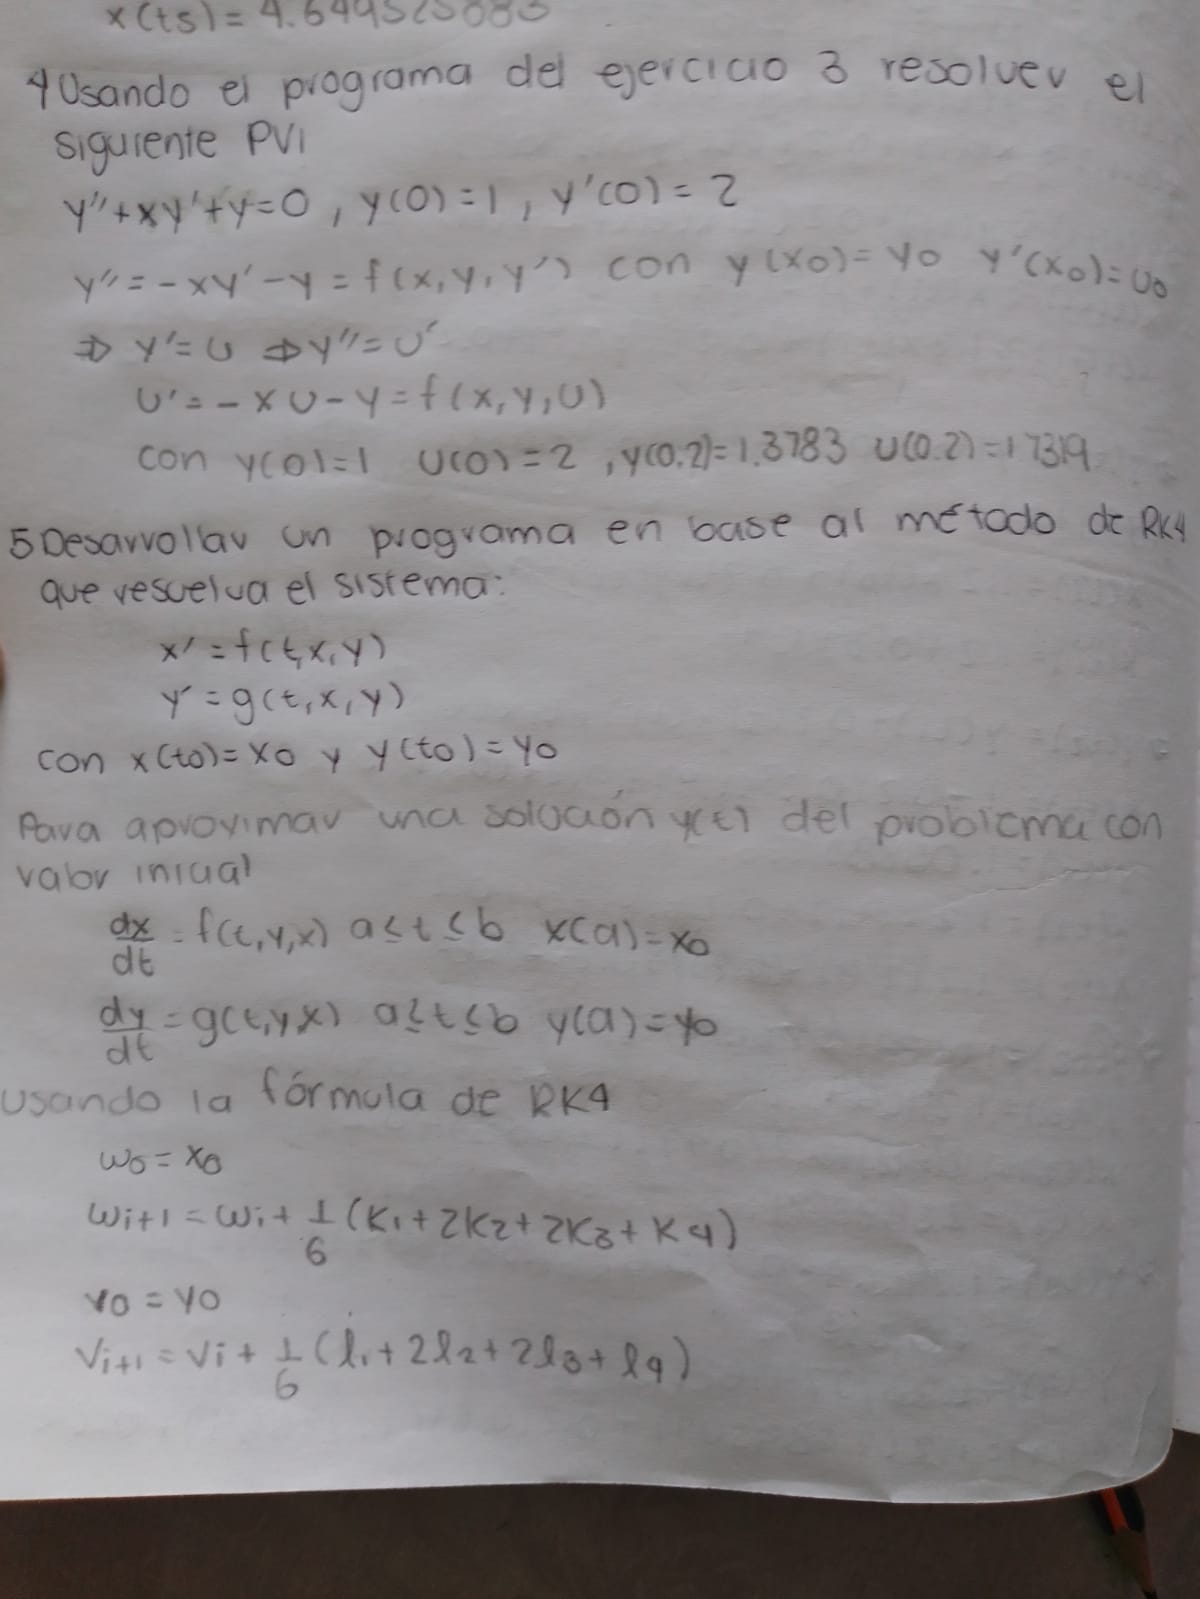 x(t5)=4.649525083
4 Usando el programa del ejercicio 3 resolver el
siguiente PVI
y''+xy'+y=0, y(0)=1, y'(0)=2
y''=-xy'-y=f(x,y,y') con y(x0)=y0 y'(x0)=u0
⇒ y'=u ⇒y''=u'
u'=-xu-y=f(x,y,u)
con y(0)=1 u(0)=2, y(0.2)=1.3783 u(0.2)=1.7319
5 Desarrollar un programa en base al método de RK4
que resuelva el sistema:
x'=f(t,x,y)
y'=g(t,x,y)
con x(t0)=x0 y y(t0)=y0
Para aproximar una solución y(t) del problema con
valor inicial
dx/dt = f(t,y,x) a≤t≤b x(a)=x0
dy/dt = g(t,y,x) a≤t≤b y(a)=y0
usando la fórmula de RK4
w0=x0
wi+1=wi+1/6(K1+2K2+2K3+K4)
v0=y0
vi+1=vi+1/6(l1+2l2+2l3+l4)